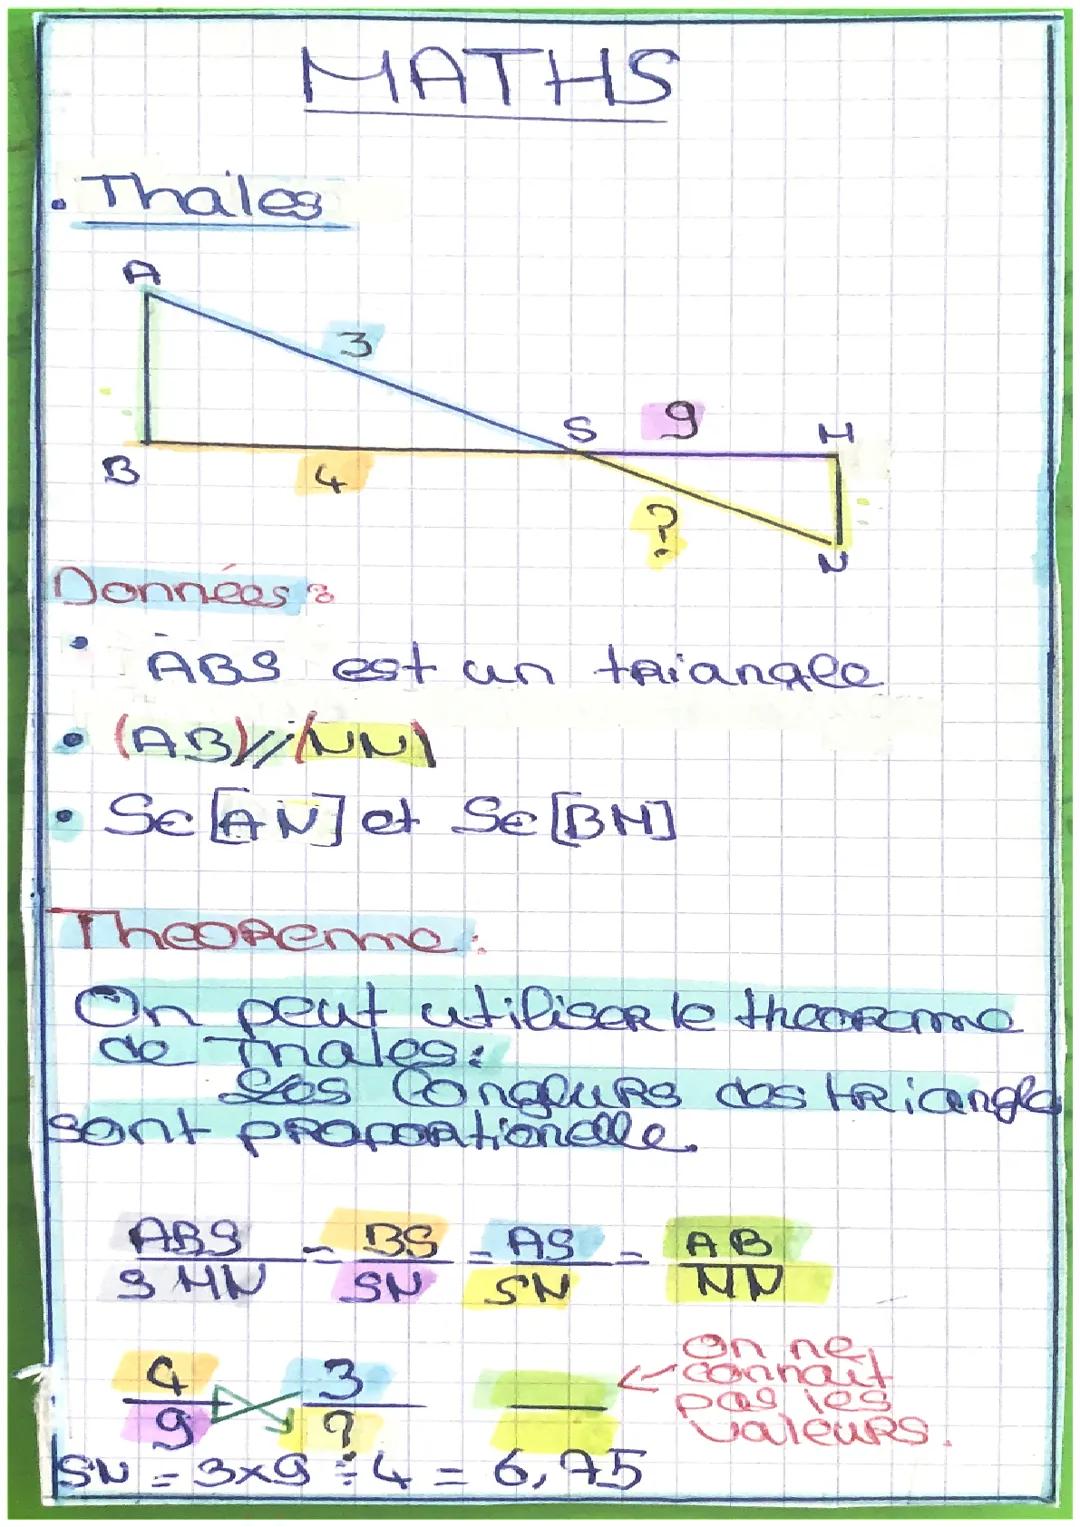 MATHS
• Thales
A
3
S
9
H
B
4
?
N
Données :
• ABS est un triangle
• (AB)//(NN)
• S∈[AN] et S∈[BM]
Theoreme :
On peut utiliser le theoreme
de Thales:
Les longeurs des triangle
sont proportionelle.
ABS/SMN = BS/SN = AS/SN = AB/NN
4/9 3/?
On ne
connait
pas les
valeurs.
SN = 3x9 ÷ 4 = 6,75